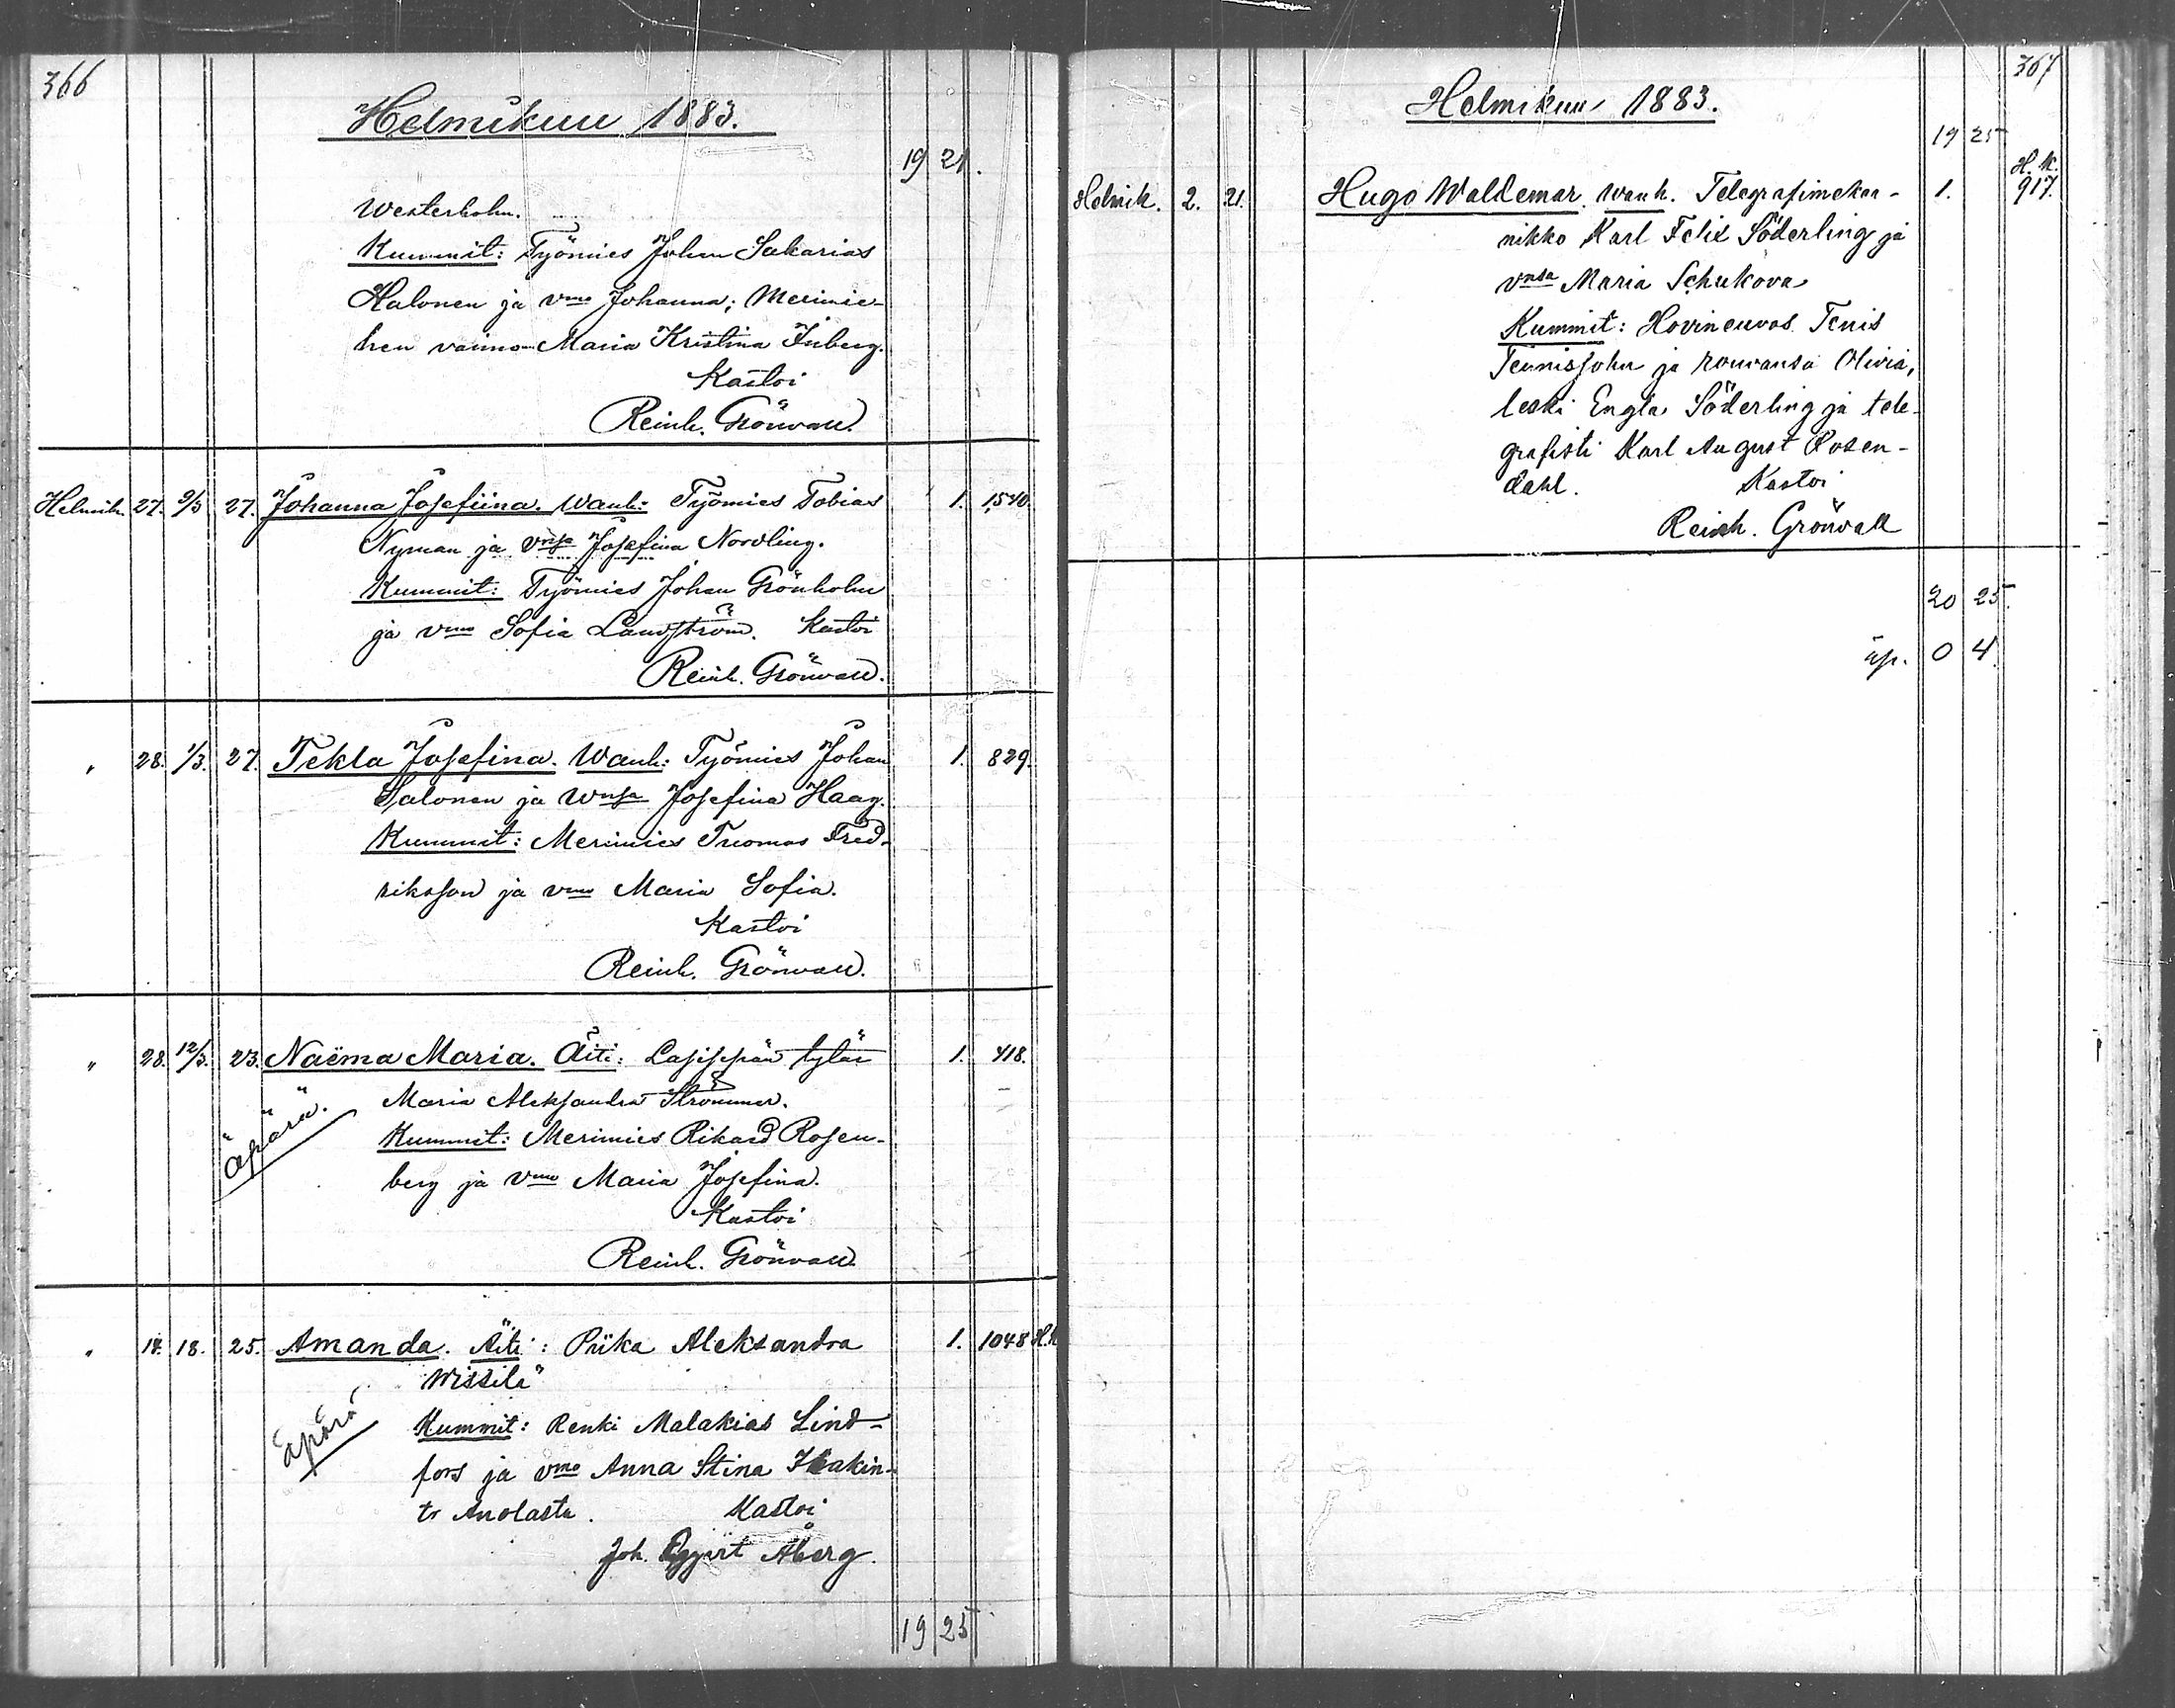 366
Helmikuu 1883.
19 21.
Westerholm.
Kummit: Työmies Johan Sakarias
Halonen ja vmo Johanna; Merimie-
hen vaimo Maria Kristina Inberg.
Kastoi
Reinh. Grönvall.
Helmik. 27. 9/3 27. Johanna Josefiina. Wanh: Työmies Tobias 1. 1,540.
Nyman ja vnsa Josefina Nordling.
Kummit: Työmies Johan Grönholm
ja vmo Sofia Landström. Kastoi
Reinh. Grönvall.
" 28. 1/3. 27. Tekla Josefina. Wanh: Työmies Johan 1. 829.
Salonen ja Wnsa Josefina Haag.
Kummit: Merimies Tuomas Fred-
riksson ja vmo Maria Sofia.
Kastoi
Reinh. Grönvall.
" 28. 12/3. 23. Naëma Maria. Äiti: Lasisepän tytär 1. 418.
Äpärä. Maria Aleksandra Strömmer.
Kummit: Merimies Rikard Rosen-
berg ja vmo Maria Josefina.
Kastoi
Reinh. Grönvall.
" 14. 18. 25. Amanda. Äiti: Piika Aleksandra 1. 1048 H.K
Wissilä
Äpärä Kummit: Renki Malakias Lind-
fors ja vmo Anna Stina Isakin-
tr Anolasta. Kastoi
Joh. Åberg.
19 25
367
Helmikuu 1883.
19 25
H. K.
Helmik. 2. 21. Hugo Waldemar. Wanh. Telegrafimekaa- 1. 917.
nikko Karl Felix Söderling ja
vnsa Maria Schukova
Kummit: Hovineuvos Tenis
Tennissohn ja rouvansa Olivia,
leski Engla Söderling ja tele-
grafisti Karl August Rosen-
dahl. Kastoi
Reinh. Grönvall
20 25.
äp. 0 4.